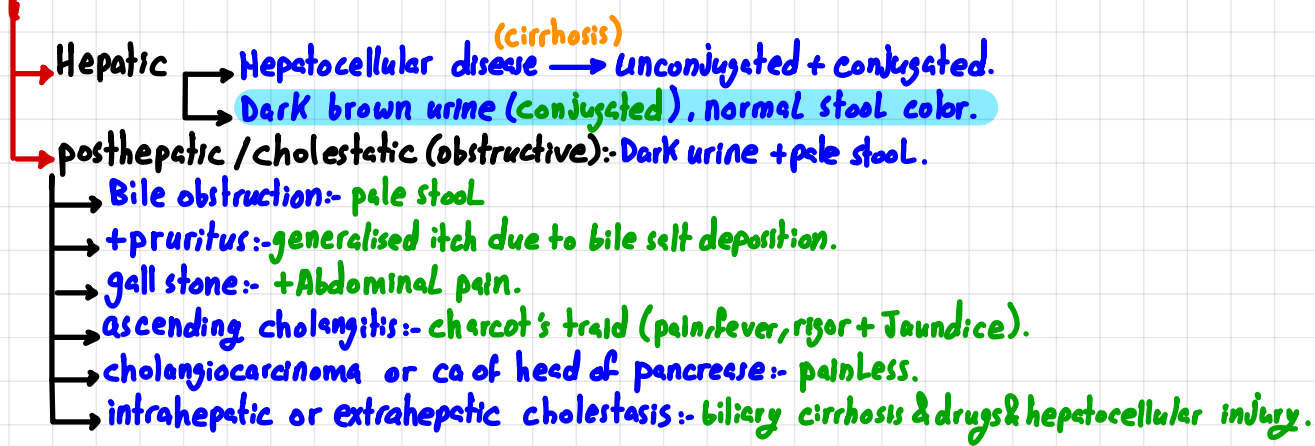 (cirrhosis)
Hepatic Hepatocellular disease → unconjugated + conjugated.
Dark brown urine (conjugated), normal stool color.
posthepatic / cholestatic (obstructive):- Dark urine + pale stool.
Bile obstruction:- pale stool
+pruritus:- generalised itch due to bile salt deposition.
gall stone:- +Abdominal pain.
ascending cholangitis:- charcot's traid (pain,fever,rigor + Jaundice).
cholangiocarcinoma or ca of head of pancrease:- painless.
intrahepatic or extrahepatic cholestasis:- biliary cirrhosis & drugs & hepatocellular injury.